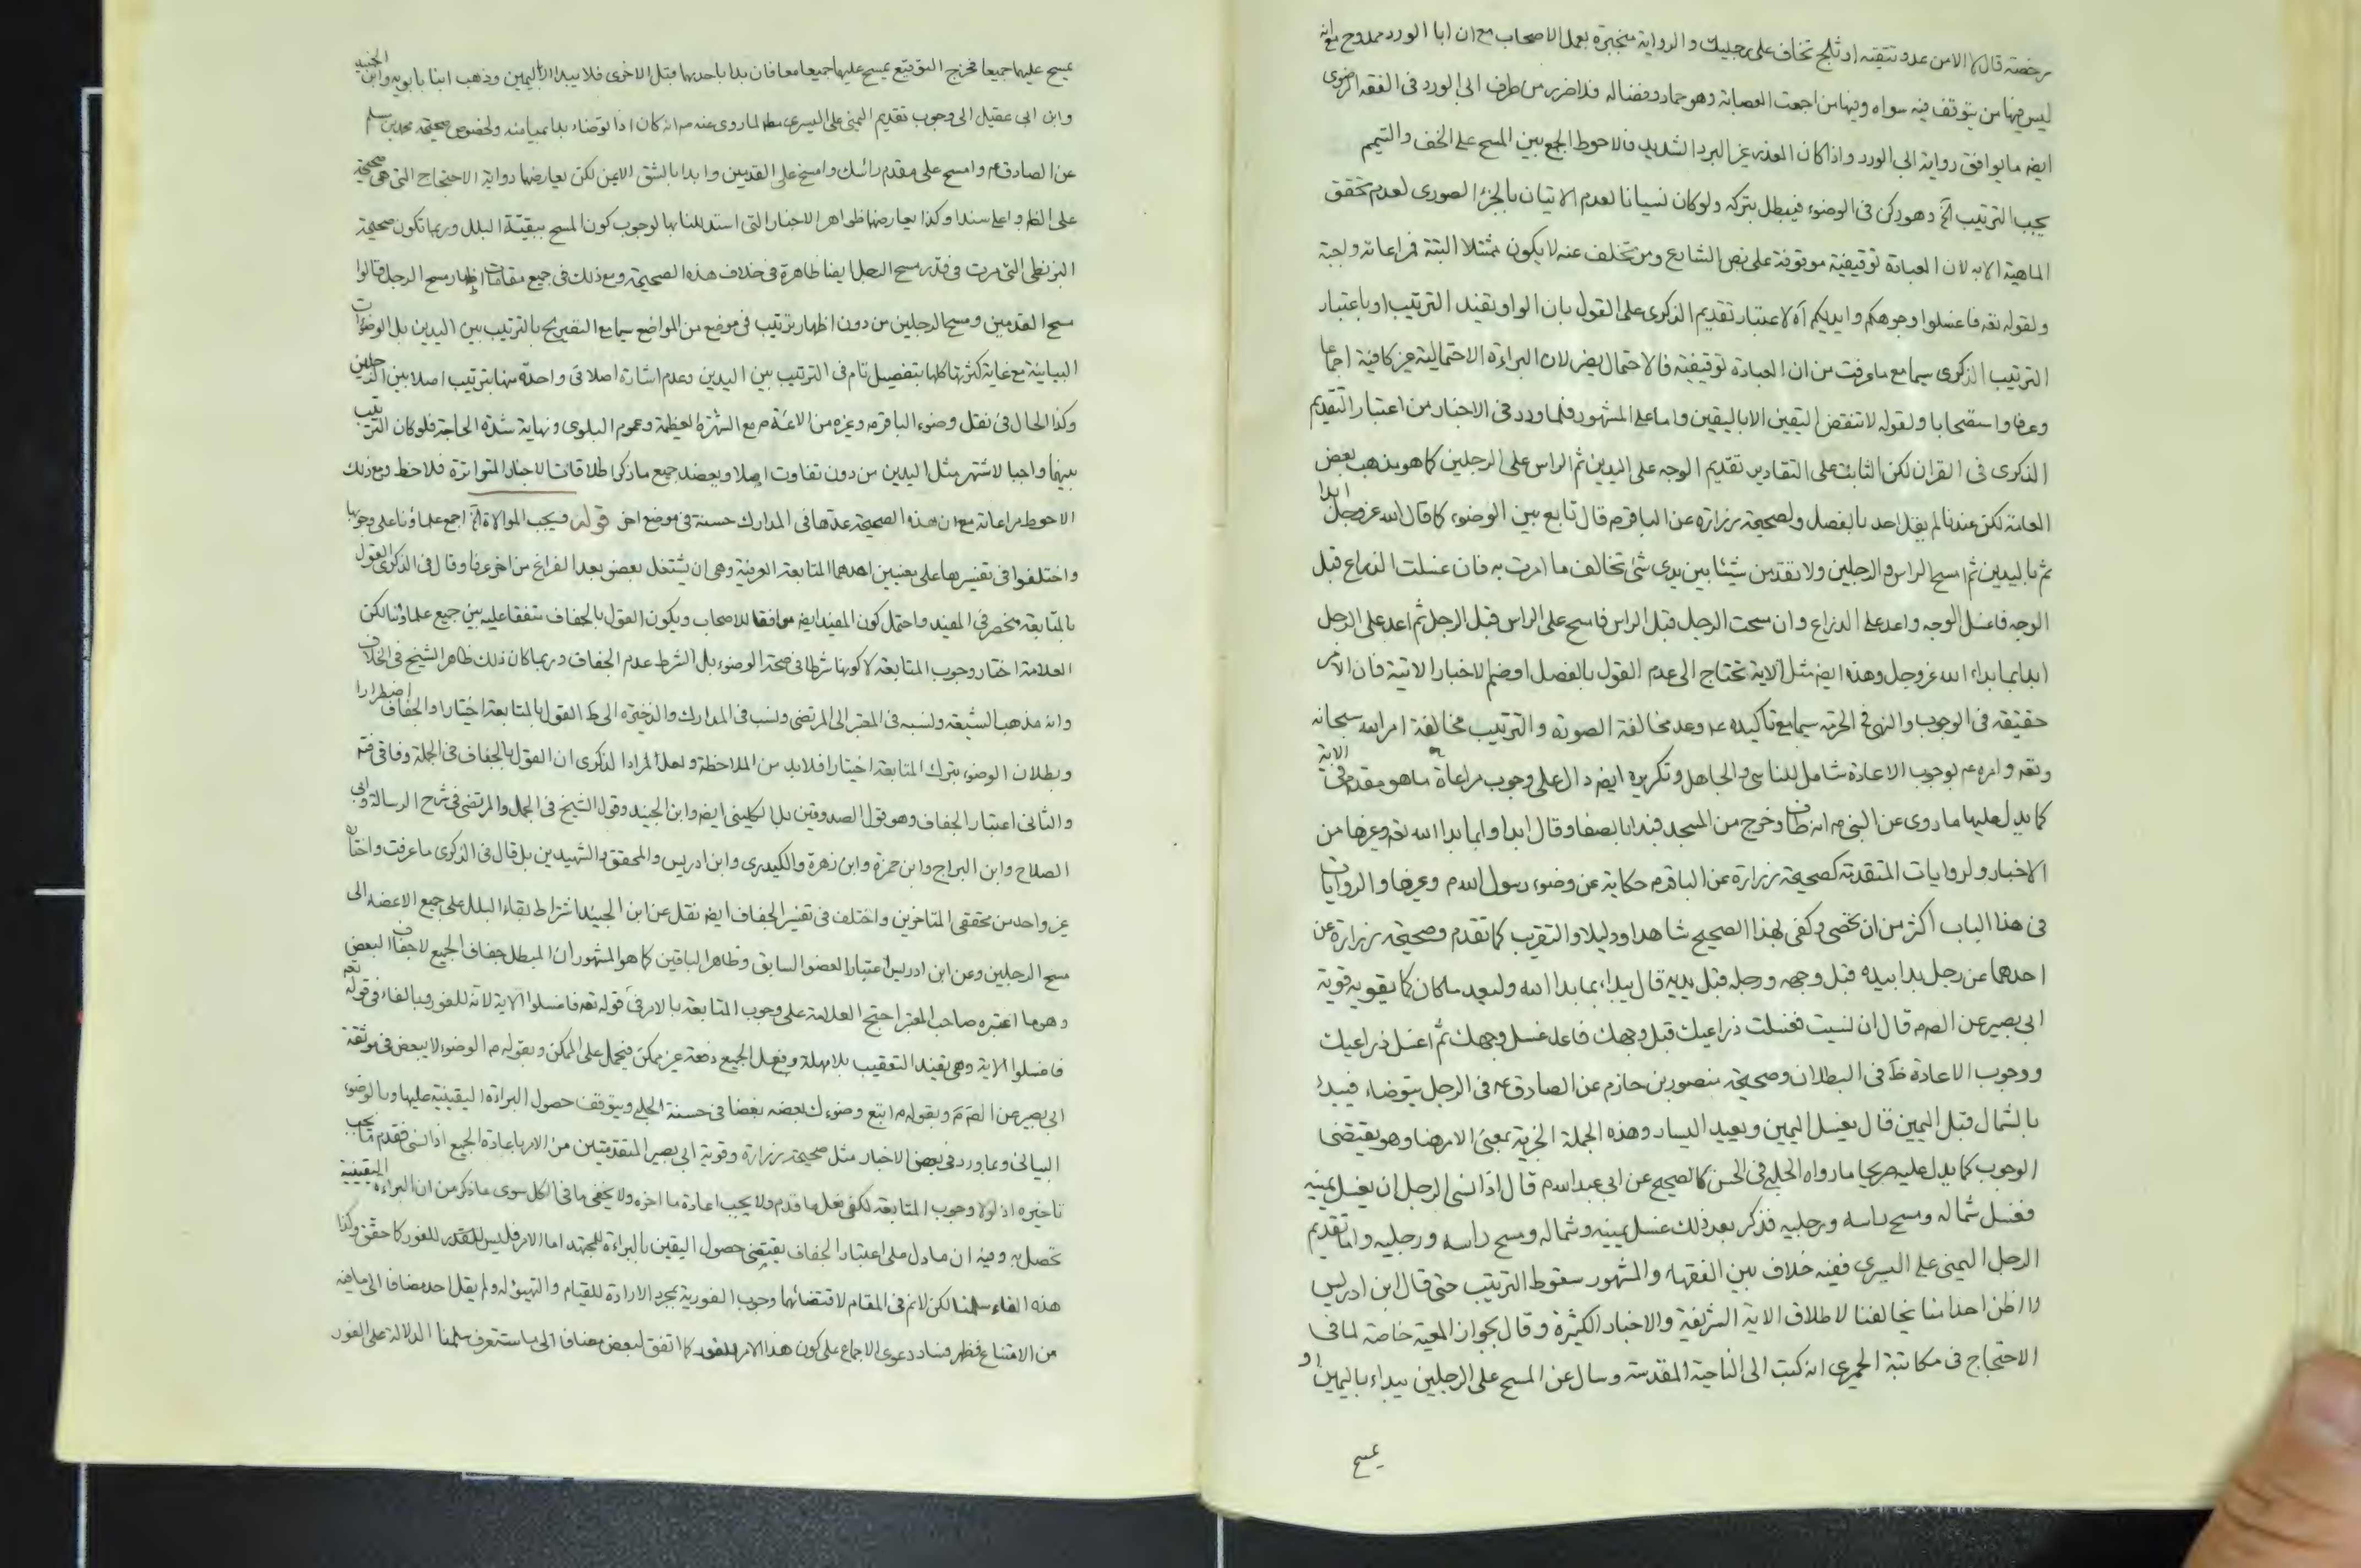 رخصة قال لا الا من عدو تتقيه او ثلج تخاف على رجليك والرواية منجبرة بعمل الاصحاب مع ان ابا الورد ممدوح مع انه
ليس فيها من يتوقف فيه سواه وفيها من اجمعت العصابة وهو حماد وفضاله فلا ضرر من طرف ابى الورد فى الفقه الرضوى
ايضا ما يوافق رواية ابى الورد واذا كان العذر غير البرد الشديد فالاحوط الجمع بين المسح على الخف والتيمم
يجب الترتيب الخ وهو ركن فى الوضوء فيبطل بتركه ولو كان نسيانا لعدم الاتيان بالجزء الصورى لعدم تحقق
الماهية الا به لان العبادة توقيفية موقوفة على نص الشارع ومن تخلف عنه لا يكون ممتثلا البتة فمراعاته واجبة
ولقوله تعه فاغسلوا وجوهكم وايديكم آه لاعتبار تقديم الذكرى على القول بان الواو يفيد الترتيب او باعتبار
الترتيب الذكرى سيما مع ما عرفت من ان العبادة توقيفية فالاحتمال يضر لان البراءة الاحتمالية غير كافية اجماعا
وعرفا واستصحابا ولقوله لا تنقض اليقين الا باليقين واما على المشهور فلما ورد فى الاخبار من اعتبار التقديم
الذكرى فى القران لكن الثابت على التقادير تقديم الوجه على اليدين ثم الراس على الرجلين كما هو مذهب بعض
العامة لكن عندنا لم يقل احد بالفصل ولصحيحة زرارة عن الباقر م قال تابع بين الوضوء كما قال الله عز وجل ابدا
ثم باليدين ثم امسح الراس والرجلين ولا تقدمن شيئا بين يدى شئ تخالف ما امرت به فان غسلت الذراع قبل
الوجه فاغسل الوجه واعد على الذراع وان مسحت الرجل قبل الراس فامسح على الراس قبل الرجل ثم اعد على الرجل
ابدا بما بداء الله عز وجل وهذه ايضا مثل الاية تحتاج الى عدم القول بالفصل او ضم الاخبار الاتية فان الامر
حقيقة فى الوجوب والنهى فى الحرمة سيما مع تاكيده عه وعد مخالفة الصورة والترتيب مخالفة امر الله سبحانه
وتعه وامره عه بوجوب الاعادة شامل للناسى والجاهل وتكريره ايضا دال على وجوب مراعاة ما هو مقدم فى الاية
كما يدل عليها ما روى عن النبى م انه طاف وخرج من المسجد فبدا بالصفا وقال ابداوا بما بدا الله تعه وغيرها من
الاخبار ولروايات المتقدمة كصحيحة زرارة عن الباقر م حكاية عن وضوء رسول الله م وغيرها والروايات
فى هذا الباب اكثر من ان تحصى وكفى لهذا الصحيح شاهدا ودليلا والتقريب كما تقدم وصحيحة زرارة عن
احدهما عن رجل بدا بيده قبل وجهه ورجله قبل يديه قال يبداء بما بدا الله وليعد ما كان كما يقويه قوية
ابى بصير عن الصم قال ان نسيت فغسلت ذراعيك قبل وجهك فاعد غسل وجهك ثم اغسل ذراعيك
ووجوب الاعادة ظ فى البطلان وصحيحة منصور بن حازم عن الصادق عه فى الرجل يتوضاء فيبداء
بالشمال قبل اليمين قال يغسل اليمين ويعيد اليسار وهذه الجملة الخبرية بمعنى الامر هنا وهو يقتضى
الوجوب كما يدل عليه صريحا ما رواه الحلبى فى الحسن كالصحيح عن ابى عبد الله م قال اذا نسى الرجل ان يغسل يمينه
فغسل شماله ومسح راسه ورجليه فذكر بعد ذلك غسل يمينه وشماله ومسح راسه ورجليه واما تقديم
الرجل اليمنى على اليسرى ففيه خلاف بين الفقهاء والمشهور سقوط الترتيب حتى قال ابن ادريس
ولا اظن احدا منا يخالفنا لاطلاق الاية الشريفة والاخبار الكثيرة وقال بجواز المعية خاصة لما فى
الاحتجاج فى مكاتبة الحميرى انه كتب الى الناحية المقدسة وسال عن المسح على الرجلين يبداء باليمين او
يمسح
يمسح عليهما جميعا فخرج التوقيع يمسح عليهما جميعا معا فان بدا باحديهما قبل الاخرى فلا يبدا الا باليمين وذهب ابنا بابويه وابن الجنيد
وابن ابى عقيل الى وجوب تقديم اليمنى على اليسرى لما روى عنه م انه كان اذا توضاء بدا بميامنه ولخصوص صحيحة محمد بن مسلم
عن الصادق عه وامسح على مقدم رائسك وامسح على القدمين وابدا بالشق الايمن لكن يعارضها رواية الاحتجاج التى هى صحيحة
على الظ واعلى سندا وكذا يعارضها ظواهر الاخبار التى استدللنا بها لوجوب كون المسح ببقية البلل وربما تكون صحيحة
البزنطى التى مرت فى قدر مسح الرجل ايضا ظاهرة فى خلاف هذه الصحيحة ومع ذلك فى جميع مقامات اظهار مسح الرجل قالوا
مسح القدمين ومسح الرجلين من دون اظهار ترتيب فى موضع من المواضع سيما مع التصريح بالترتيب بين اليدين بل الوضوءات
البيانية مع غاية كثرتها كلها بتفصيل تام فى الترتيب بين اليدين وعدم اشارة اصلا فى واحدة منها بترتيب اصلا بين الرجلين
وكذا الحال فى نقل وضوء الباقر م وغيره من الائمة م مع الشهرة العظيمة وعموم البلوى ونهاية شدة الحاجة فلو كان الترتيب
بينهما واجبا لاشتهر مثل اليدين من دون تفاوت اصلا ويعضد جميع ما ذكر اطلاقات الاخبار المتواترة فلاحظ ومع ذلك
الاحوط مراعاته مع ان هذه الصحيحة عدها فى المدارك حسنة فى موضع اخر قوله ويجب الموالاة الخ اجمع علماؤنا على وجوبها
واختلفوا فى تفسيرها على معنيين احدهما المتابعة العرفية وهى ان يشتغل ببعض بعد الفراغ من اخر عرفا وقال فى الذكرى القول
بالمتابعة منحصر فى المفيد واحتمل كون المفيد ايضا موافقا للاصحاب ويكون القول بالجفاف متفقا عليه بين جميع علماؤنا لكن
العلامة اختار وجوب المتابعة لا كونها شرطا فى صحة الوضوء بل الشرط عدم الجفاف وربما كان ذلك ظاهر الشيخ فى الخلاف
وانه مذهب الشيعة ونسبه فى المعتبر الى المرتضى ونسب فى المدارك والذخيرة الى ط القول بالمتابعة اختيارا والجفاف اضطرارا
وبطلان الوضوء بترك المتابعة اختيارا فلا بد من الملاحظة ولعل مراد الذكرى ان القول بالجفاف فى الجملة وفاقى فتم
والثانى اعتبار الجفاف وهو قول الصدوقين بل الكلينى ايضا وابن الجنيد وقول الشيخ فى الجمل والمرتضى فى شرح الرسالة وابى
الصلاح وابن البراج وابن حمزة وابن زهرة والكيدرى وابن ادريس والمحقق والشهيدين بل قال فى الذكرى ما عرفت واختاره
غير واحد من محققى المتاخرين واختلف فى تفسير الجفاف ايضا نقل عن ابن الجنيد اشتراط بقاء البلل على جميع الاعضاء الى
مسح الرجلين وعن ابن ادريس اعتبار العضو السابق وظاهر الباقين كما هو المشهور ان المبطل جفاف الجميع لا جفاف البعض
وهو ما اعتبره صاحب المعتبر احتج العلامة على وجوب المتابعة بالامر فى قوله تعه فاغسلوا الاية لانه للفور وبالفاء فى قوله تعه
فاغسلوا الاية وهى يفيد التعقيب بلا مهلة وفعل الجميع دفعة غير ممكن فيحمل على الممكن وبقوله م الوضوء لا يبعض فى موثقة
ابى بصير عن الصم وبقوله م اتبع وضوءك بعضه بعضا فى حسنة الحلبى وبتوقف حصول البراءة اليقينية عليها وبالوضوء
البيانى وبما ورد فى بعض الاخبار مثل صحيحة زرارة وقوية ابى بصير المتقدمتين من الامر باعادة الجميع اذا نسى فقدم ما يجب
تاخيره اذ لولا وجوب المتابعة لكفى فعل ما قدم ولا يجب اعادة ما اخره ولا يخفى ما فى الكل سوى ما ذكر من ان البراءة اليقينية
تحصل به وفيه ان ما دل على اعتبار الجفاف يقتضى حصول اليقين بالبراءة للمجتهد اما الامر فليس للفور كما حقق وكذا
هذه الفاء سلمنا لكن لا نم فى المقام لاقتضائهما وجوب الفورية بمجرد الارادة للقيام والتهيؤ له ولم يقل احد مضافا الى ما فيه
من الامتناع فظهر فساد دعوى الاجماع على كون هذا الامر للفور كما اتفق لبعض مضافا الى ما ستعرف سلمنا الدلالة على الفور